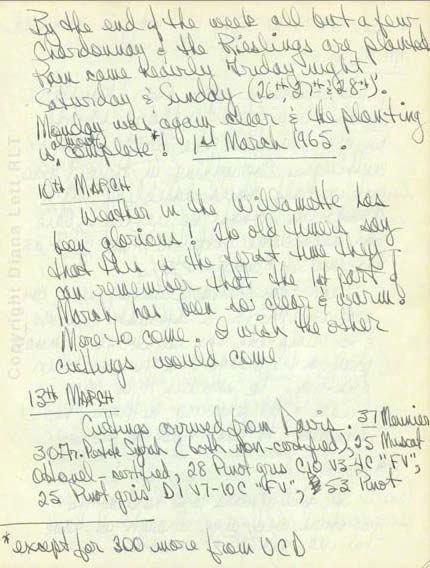 By the end of the week all but a few
Chardonnay & the Rieslings are planted
Rain came heavily Friday night
Saturday & Sunday (26th, 27th & 28th).
Monday was again clear & the planting
is almost complete*! 1st March 1965.
10th MARCH
Weather in the Willamette has
been glorious! The old timers say
that this is the first time they
can remember that the 1st part of
March has been so clear & warm.
More to come. I wish the other
cuttings would come
13th MARCH
Cuttings arrived from Davis. 37 Meunier
30 Fr. Petite Syrah (both non-certified), 25 Muscat
Ottonel - certified, 28 Pinot gris C10 V3-4C "FV",
25 Pinot gris D1 V7-10C "FV", 53 Pinot
*except for 300 more from UCD
Copyright Diana Lett RLT